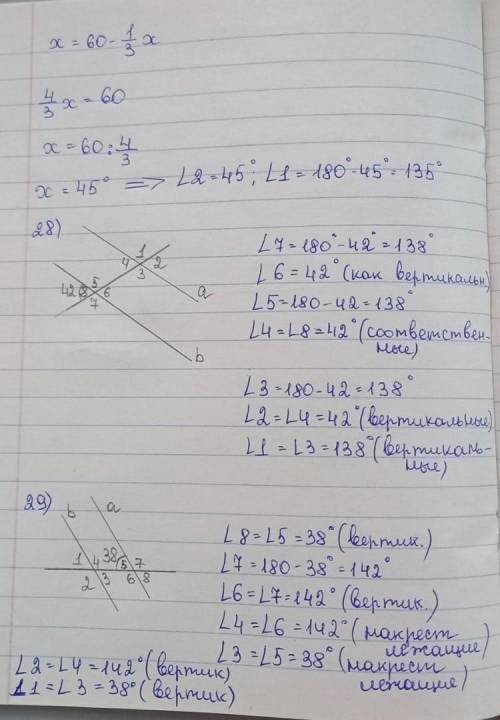 x = 60 - 1/3 x
4/3 x = 60
x = 60 : 4/3
x = 45° ⟹ ∠2 = 45°; ∠1 = 180° - 45° = 135°
28)
1
4 2
3
5
42° 8 6
7
a
b
∠7 = 180° - 42° = 138°
∠6 = 42° (как вертикальн.)
∠5 = 180 - 42 = 138°
∠4 = ∠8 = 42° (соответствен-
ные)
∠3 = 180 - 42 = 138°
∠2 = ∠4 = 42° (вертикальные)
∠1 = ∠3 = 138° (вертикаль-
ные)
29)
b a
1 4 38° 5 7
2 3 6 8
∠8 = ∠5 = 38° (вертик.)
∠7 = 180 - 38° = 142°
∠6 = ∠7 = 142° (вертик.)
∠4 = ∠6 = 142° (накрест
лежащие)
∠3 = ∠5 = 38° (накрест
лежащие)
∠2 = ∠4 = 142° (вертик)
∠1 = ∠3 = 38° (вертик)